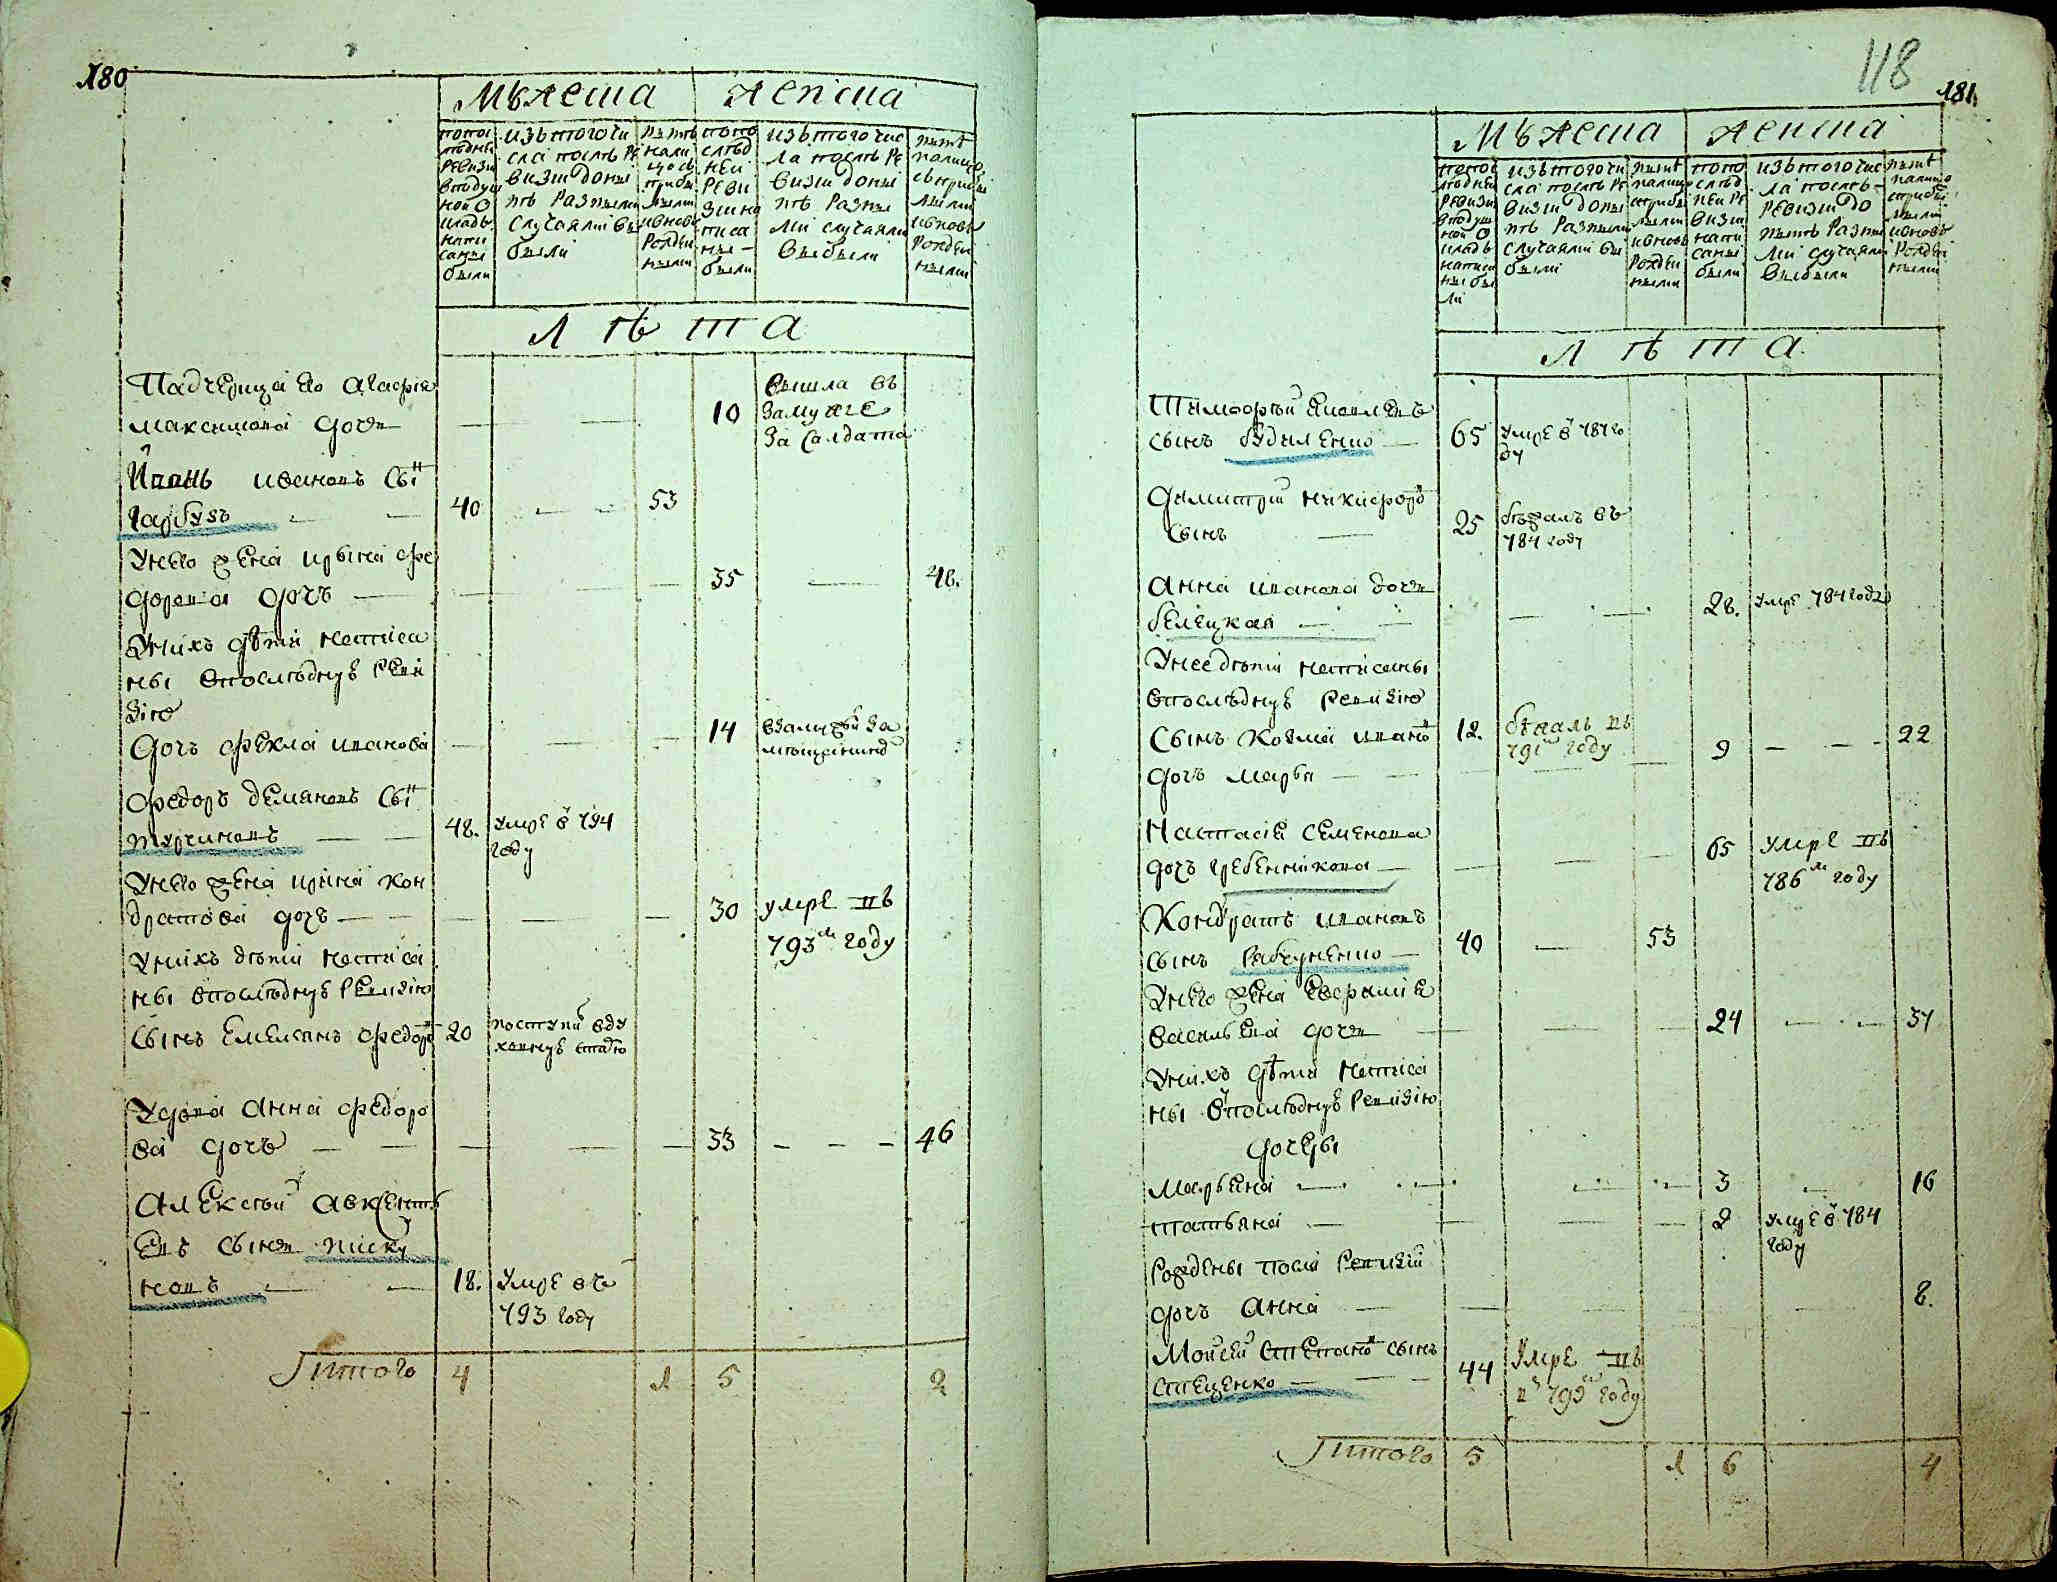 180
Мужеска
женска
по пос
ледней
ревизи
в подуш
ной о
кладъ
напи
саны
были
изъ того чи
сла послѣ ре
визии до ны
нѣ разными
случаями вы
были
нынѣ
нали
цо съ
прибы
лыми
и вновь
рожден
ными
по по
слѣд
ней
реви
зии на
писа
ны
были
изъ того чис
ла послѣ ре
визии до ны
нѣ разны
ми случаями
выбыли
нынѣ
налицо
съ прибы
лыми
и вновь
рожден
ными
Лѣта
Падчерица его Агафия
Максимова дочь
10
вышла въ
замуже
за салдата
Иванъ Ивановъ сынъ
Гарбузъ
40
53
У него жена Ирына Фе
дорова дочъ
35
48.
У нихъ дѣти написа
ны в последнуъ реви
зию
Дочъ Фекла Иванова
14
в замужй за
мещанинō
Федоръ Демяновъ сынъ
Турчиновъ
48.
умре в 794
году
У него жена Ирина Кон
дратова дочъ
30
умре въ
793м году
У нихъ дѣти написа
ны в последнуъ ревизию
Сынъ Емелянъ Федоро
20
поступи в ду
ховнуъ стато
Удова Анна Федоро
ва дочъ
33
46
Алексѣй Авксенть
евъ сынъ Писку
новъ
18.
умре въ
793 году
Итого
4
1
5
2
118
181.
Мужеска
женска
по пос
ледней
ревизи
в подуш
ной о
кладъ
написа
ны бы
ли
изъ того чи
сла послѣ ре
визии до ны
нѣ разными
случаями вы
были
нынѣ
налицо
с прибы
лыми
и вновь
рожден
ными
по по
слѣд
ней ре
визии
напи
саны
были
изъ того чис
ла послѣ
ревизии до
нынѣ разны
ми случаями
выбыли
нынѣ
налицо
с прибы
лыми
и вновь
рожден
ными
Лѣта
Тимофѣй Яковлевъ
сынъ Будиленко
65
умре в 787 го
ду
Димитрий Никифоровъ
сынъ
25
бѣжалъ въ
784 году
Анна Иванова дочь
Белецкая
28.
умре 784 году
У нее дѣти написаны
в последнуъ ревизию
Сынъ Козма Ивано
12.
бѣжалъ въ
791м году
дочъ Марья
9
22
Настасия Семенова
дочъ Гребенникова
65
умре въ
786м году
Кондратъ Ивановъ
сынъ Рабуненко
40
53
У него жена Евфимия
Васильева дочь
24
37
У нихъ дѣти написа
ны в последнуъ ревизию
дочеры
Марьяна
3
16
Татьяна
2
умре в 784
году
Рождены после ревизии
дочъ Анна
8.
Моисей Степано сынъ
Стеценко
44
умре въ
793м году
Итого
5
1
6
4